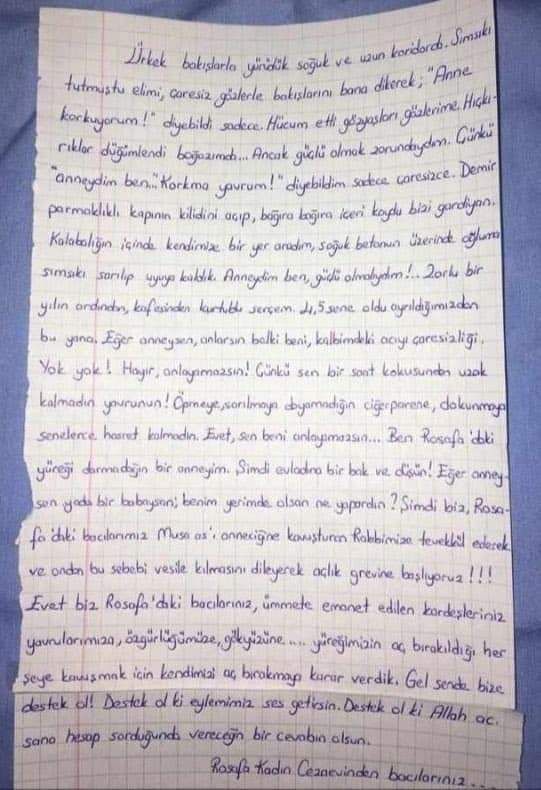 Ürkek bakışlarla yürüdük soğuk ve uzun koridorda. Sımsıkı
tutmuştu elimi, çaresiz gözlerle bakışlarını bana dikerek; "Anne
korkuyorum!" diyebildi sadece. Hücum etti gözyaşları gözlerime. Hıçkı-
rıklar düğümlendi boğazımda... Ancak güçlü olmak zorundaydım. Çünkü
"anneydim ben..." Korkma yavrum!" diyebildim sadece çaresizce. Demir
parmaklıklı kapının kilidini açıp, bağıra bağıra içeri koydu bizi gardiyan.
Kalabalığın içinde kendimize bir yer aradım, soğuk betonun üzerinde oğluma
sımsıkı sarılıp uyuya kaldık. Anneydim ben, güçlü olmalıydım!.. Zorlu bir
yılın ardından, kafesinden kurtuldu serçem. 4,5 sene oldu ayrıldığımızdan
bu yana. Eğer anneysen, anlarsın belki beni, kalbimdeki acıyı çaresizliği.
Yok yok! Hayır, anlayamazsın! Çünkü sen bir saat kokusundan uzak
kalmadın yavrunun! Öpmeye, sarılmaya doyamadığın ciğerparene, dokunmaya
senelerce hasret kalmadın. Evet, sen beni anlayamazsın... Ben Rosafa'daki
yüreği darmadağın bir anneyim. Şimdi evladına bir bak ve düşün! Eğer anney-
sen yada bir babaysan; benim yerimde olsan ne yapardın? Şimdi biz, Rosa-
fa'daki bacılarınız Musa as'ı anneciğine kavuşturan Rabbimize tevekkül ederek
ve ondan bu sebebi vesile kılmasını dileyerek açlık grevine başlıyoruz!!!
Evet biz Rosafa'daki bacılarınız, ümmete emanet edilen kardeşleriniz
yavrularımıza, özgürlüğümüze, gökyüzüne.... yüreğimizin aç bırakıldığı her
şeye kavuşmak için kendimizi aç bırakmaya karar verdik. Gel sende bize
destek ol! Destek ol ki eylemimiz ses getirsin. Destek ol ki Allah ac.
sana hesap sorduğunda vereceğin bir cevabın olsun.
Rosafa Kadın Cezaevinden bacılarınız....